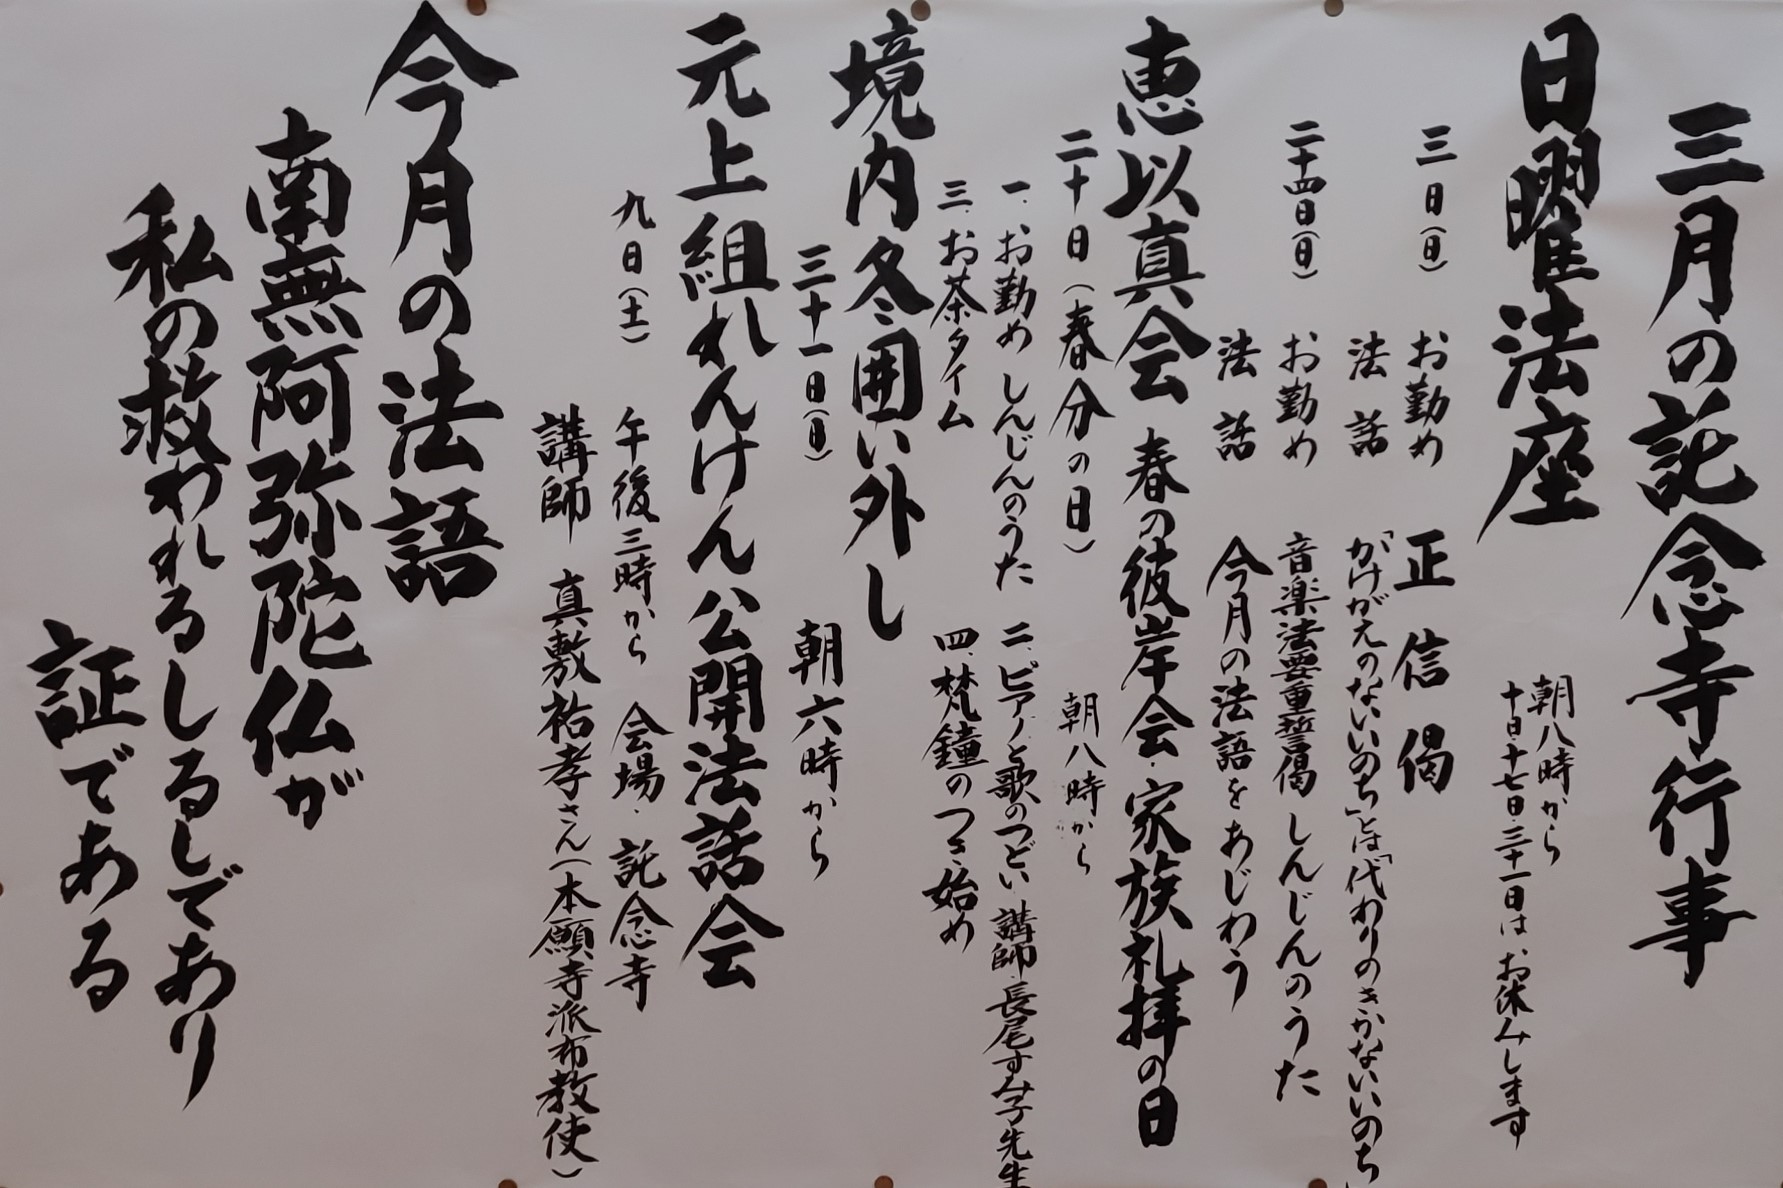 三月の託念寺行事
日曜法座
朝八時から
十日・十七日・三十一日はお休みします
三日(日) お勤め 正信偈
法話 「かけがえのないいのち」とは「代わりのきかないいのち」
二十四日(日) お勤め 音楽法要重誓偈 しんじんのうた
法話 今月の法語をあじわう
恵以真会 春の彼岸会・家族礼拝の日
二十日(春分の日) 朝八時から
一.お勤め しんじんのうた 二.ピアノと歌のつどい 講師・長尾すみ子先生
三.お茶タイム 四.梵鐘のつき始め
境内冬囲い外し
三十一日(日) 朝六時から
元上組れんけん公開法話会
九日(土) 午後三時から 会場・託念寺
講師 真敷祐孝さん(本願寺派布教使)
今月の法語
南無阿弥陀仏が
私の救われるしるしであり
証である